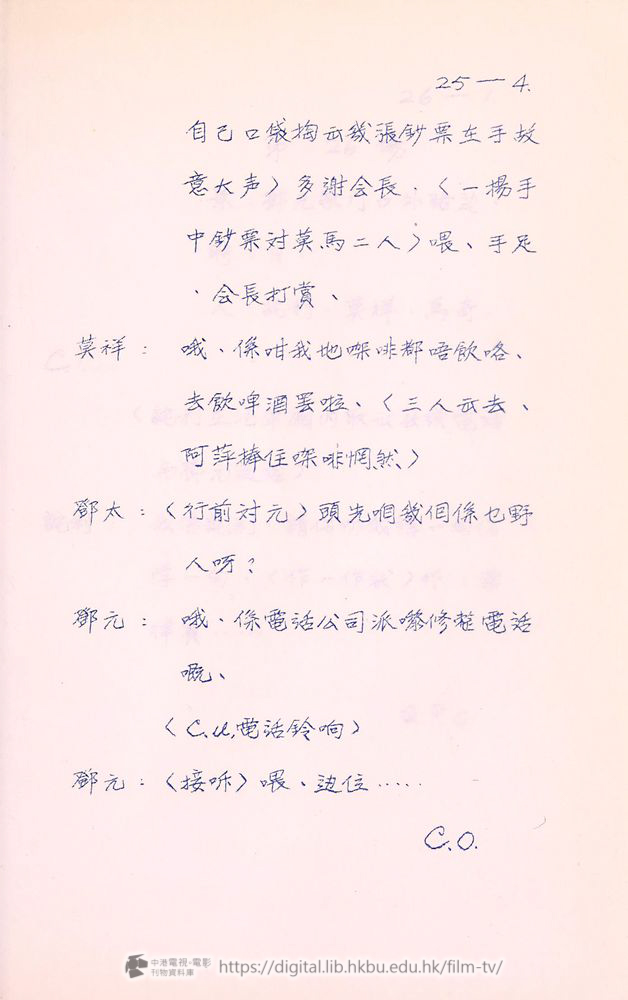 25—4.
自己口袋掏出幾張鈔票在手故
意大声〉多謝会長.〈一揚手
中鈔票対莫馬二人〉喂、手足
、会長打賞、
莫祥：哦、係咁我地㗎啡都唔飲咯、
去飲啤酒罢啦、〈三人出去、
阿萍捧住㗎啡惘然、〉
鄧太：〈行前対元〉頭先嗰幾個係乜野
人呀？
鄧元：哦、係電話公司派嚟修整電話
嘅、
〈C.U,電話鈴响〉
鄧元：〈接听〉喂、边位……
C.O.
中港電視·電影
刊物資料庫
https://digital.lib.hkbu.edu.hk/film-tv/